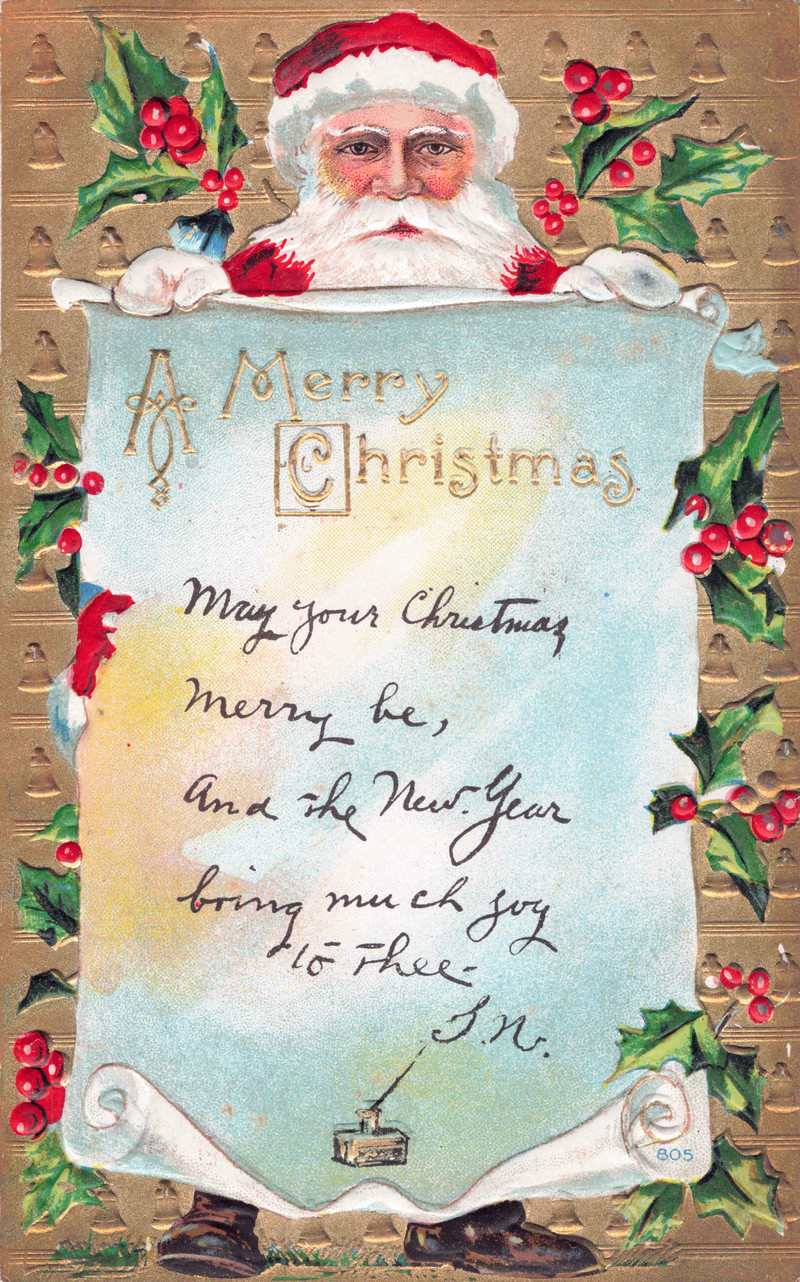 A Merry
Christmas
May your Christmas
Merry be,
And the New Year
bring much joy
to thee.
805